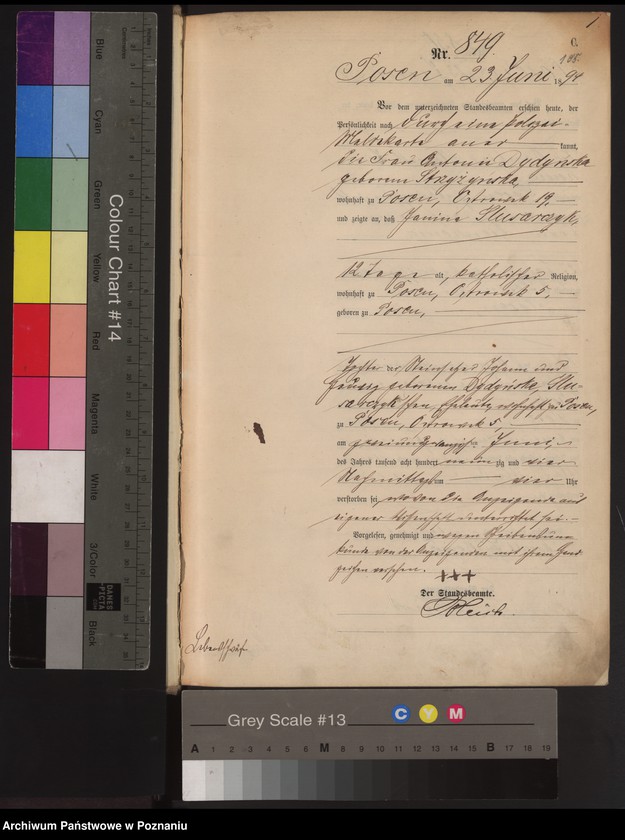 1
C.
Nr. 849.
Posen am 23 Juni 1894
Vor dem unterzeichneten Standesbeamten erschien heute, der
Persönlichkeit nach durch eine Polizei-
Meldekarte aner kannt,
die Frau Antonie Dydyńska
geborene Strzyżynska,
wohnhaft zu Posen, Ostrowek 19,
und zeigte an, daß Janina Slusarczyk,
12 Tage alt, katholischer Religion,
wohnhaft zu Posen, Ostrowek 5,
geboren zu Posen,
Tochter der Steinsetzer Johann und
geborenen Dydyńska, Slu-
sarczyk'schen Eheleute, wohnhaft zu Posen,
zu Posen, Ostrowek 5,
am zweiundzwanzigsten Juni
des Jahres tausend acht hundert neun zig und vier
Nachmittags um vier Uhr
verstorben sei, wovon die Anzeigende aus
eigener Wissenschaft unterrichtet sei.
Vorgelesen, genehmigt und wegen Schreibensun-
kunde von der Anzeigenden mit ihrem Hand-
zeichen versehen.
+++
Der Standesbeamte.
Lebensschwäche
Blue
Cyan
Green
Yellow
Red
Magenta
White
3/Color
Black
Colour Chart #14
Centimetres
Inches
DANES
PICTA
Grey Scale #13
C Y M
A 1 2 3 4 5 6 M 8 9 10 11 12 13 14 15 B 17 18 19
Archiwum Państwowe w Poznaniu